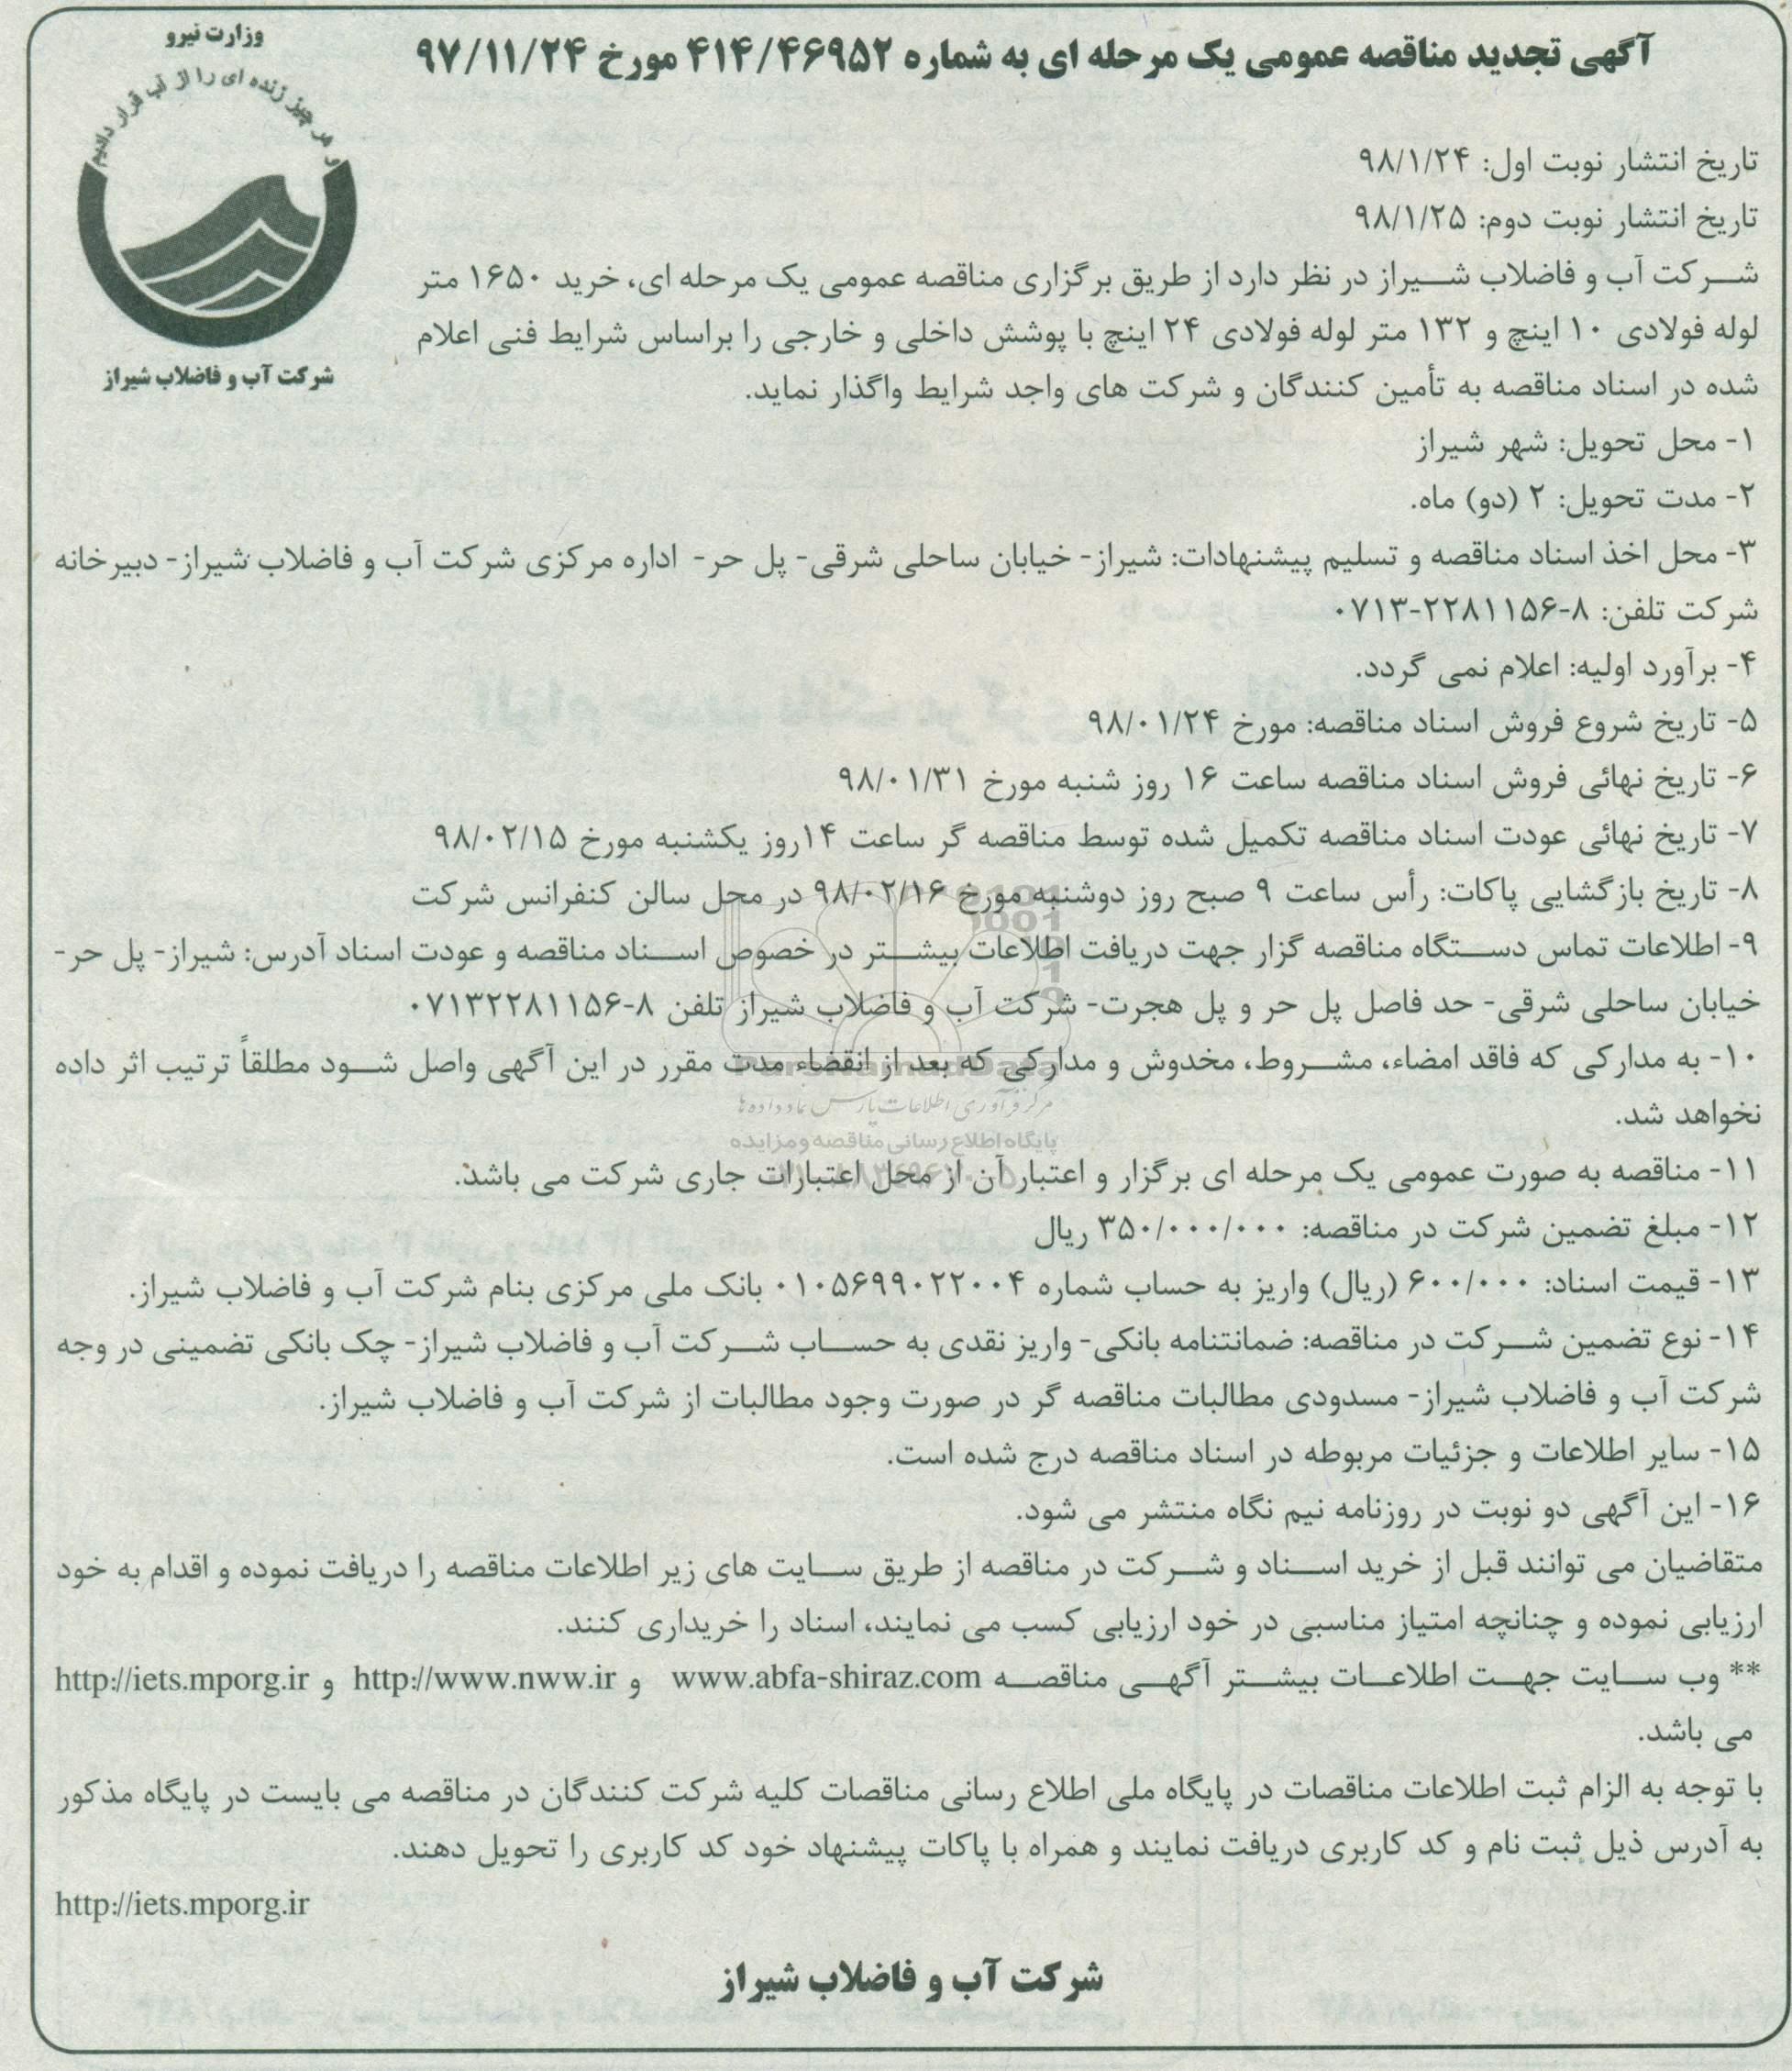 وزارت نیرو
و هر چیز زنده ای را از آب قرار دادیم
شرکت آب و فاضلاب شیراز
آگهی تجدید مناقصه عمومی یک مرحله ای به شماره ۴۱۴/۴۶۹۵۲ مورخ ۹۷/۱۱/۲۴
تاریخ انتشار نوبت اول: ۹۸/۱/۲۴
تاریخ انتشار نوبت دوم: ۹۸/۱/۲۵
شرکت آب و فاضلاب شیراز در نظر دارد از طریق برگزاری مناقصه عمومی یک مرحله ای، خرید ۱۶۵۰ متر
لوله فولادی ۱۰ اینچ و ۱۳۲ متر لوله فولادی ۲۴ اینچ با پوشش داخلی و خارجی را براساس شرایط فنی اعلام
شده در اسناد مناقصه به تأمین کنندگان و شرکت های واجد شرایط واگذار نماید.
۱- محل تحویل: شهر شیراز
۲- مدت تحویل: ۲ (دو) ماه.
۳- محل اخذ اسناد مناقصه و تسلیم پیشنهادات: شیراز- خیابان ساحلی شرقی- پل حر- اداره مرکزی شرکت آب و فاضلاب شیراز- دبیرخانه
شرکت تلفن: ۸-۰۷۱۳-۲۲۸۱۱۵۶
۴- برآورد اولیه: اعلام نمی گردد.
۵- تاریخ شروع فروش اسناد مناقصه: مورخ ۹۸/۰۱/۲۴
۶- تاریخ نهائی فروش اسناد مناقصه ساعت ۱۶ روز شنبه مورخ ۹۸/۰۱/۳۱
۷- تاریخ نهائی عودت اسناد مناقصه تکمیل شده توسط مناقصه گر ساعت ۱۴روز یکشنبه مورخ ۹۸/۰۲/۱۵
۸- تاریخ بازگشایی پاکات: رأس ساعت ۹ صبح روز دوشنبه مورخ ۹۸/۰۲/۱۶ در محل سالن کنفرانس شرکت
۹- اطلاعات تماس دستگاه مناقصه گزار جهت دریافت اطلاعات بیشتر در خصوص اسناد مناقصه و عودت اسناد آدرس: شیراز- پل حر-
خیابان ساحلی شرقی- حد فاصل پل حر و پل هجرت- شرکت آب و فاضلاب شیراز تلفن ۸-۰۷۱۳۲۲۸۱۱۵۶
۱۰- به مدارکی که فاقد امضاء، مشروط، مخدوش و مدارکی که بعد از انقضاء مدت مقرر در این آگهی واصل شود مطلقاً ترتیب اثر داده
نخواهد شد.
مرکز فرآوری اطلاعات پارس نماد داده ها
پایگاه اطلاع رسانی مناقصه و مزایده
۱۱- مناقصه به صورت عمومی یک مرحله ای برگزار و اعتبار آن از محل اعتبارات جاری شرکت می باشد.
۱۲- مبلغ تضمین شرکت در مناقصه: ۳۵۰/۰۰۰/۰۰۰ ریال
۱۳- قیمت اسناد: ۶۰۰/۰۰۰ (ریال) واریز به حساب شماره ۰۱۰۵۶۹۹۰۲۲۰۰۴ بانک ملی مرکزی بنام شرکت آب و فاضلاب شیراز.
۱۴- نوع تضمین شرکت در مناقصه: ضمانتنامه بانکی- واریز نقدی به حساب شرکت آب و فاضلاب شیراز- چک بانکی تضمینی در وجه
شرکت آب و فاضلاب شیراز- مسدودی مطالبات مناقصه گر در صورت وجود مطالبات از شرکت آب و فاضلاب شیراز.
۱۵- سایر اطلاعات و جزئیات مربوطه در اسناد مناقصه درج شده است.
۱۶- این آگهی دو نوبت در روزنامه نیم نگاه منتشر می شود.
متقاضیان می توانند قبل از خرید اسناد و شرکت در مناقصه از طریق سایت های زیر اطلاعات مناقصه را دریافت نموده و اقدام به خود
ارزیابی نموده و چنانچه امتیاز مناسبی در خود ارزیابی کسب می نمایند، اسناد را خریداری کنند.
** وب سایت جهت اطلاعات بیشتر آگهی مناقصه www.abfa-shiraz.com و http://www.nww.ir و http://iets.mporg.ir
می باشد.
با توجه به الزام ثبت اطلاعات مناقصات در پایگاه ملی اطلاع رسانی مناقصات کلیه شرکت کنندگان در مناقصه می بایست در پایگاه مذکور
به آدرس ذیل ثبت نام و کد کاربری دریافت نمایند و همراه با پاکات پیشنهاد خود کد کاربری را تحویل دهند.
http://iets.mporg.ir
شرکت آب و فاضلاب شیراز